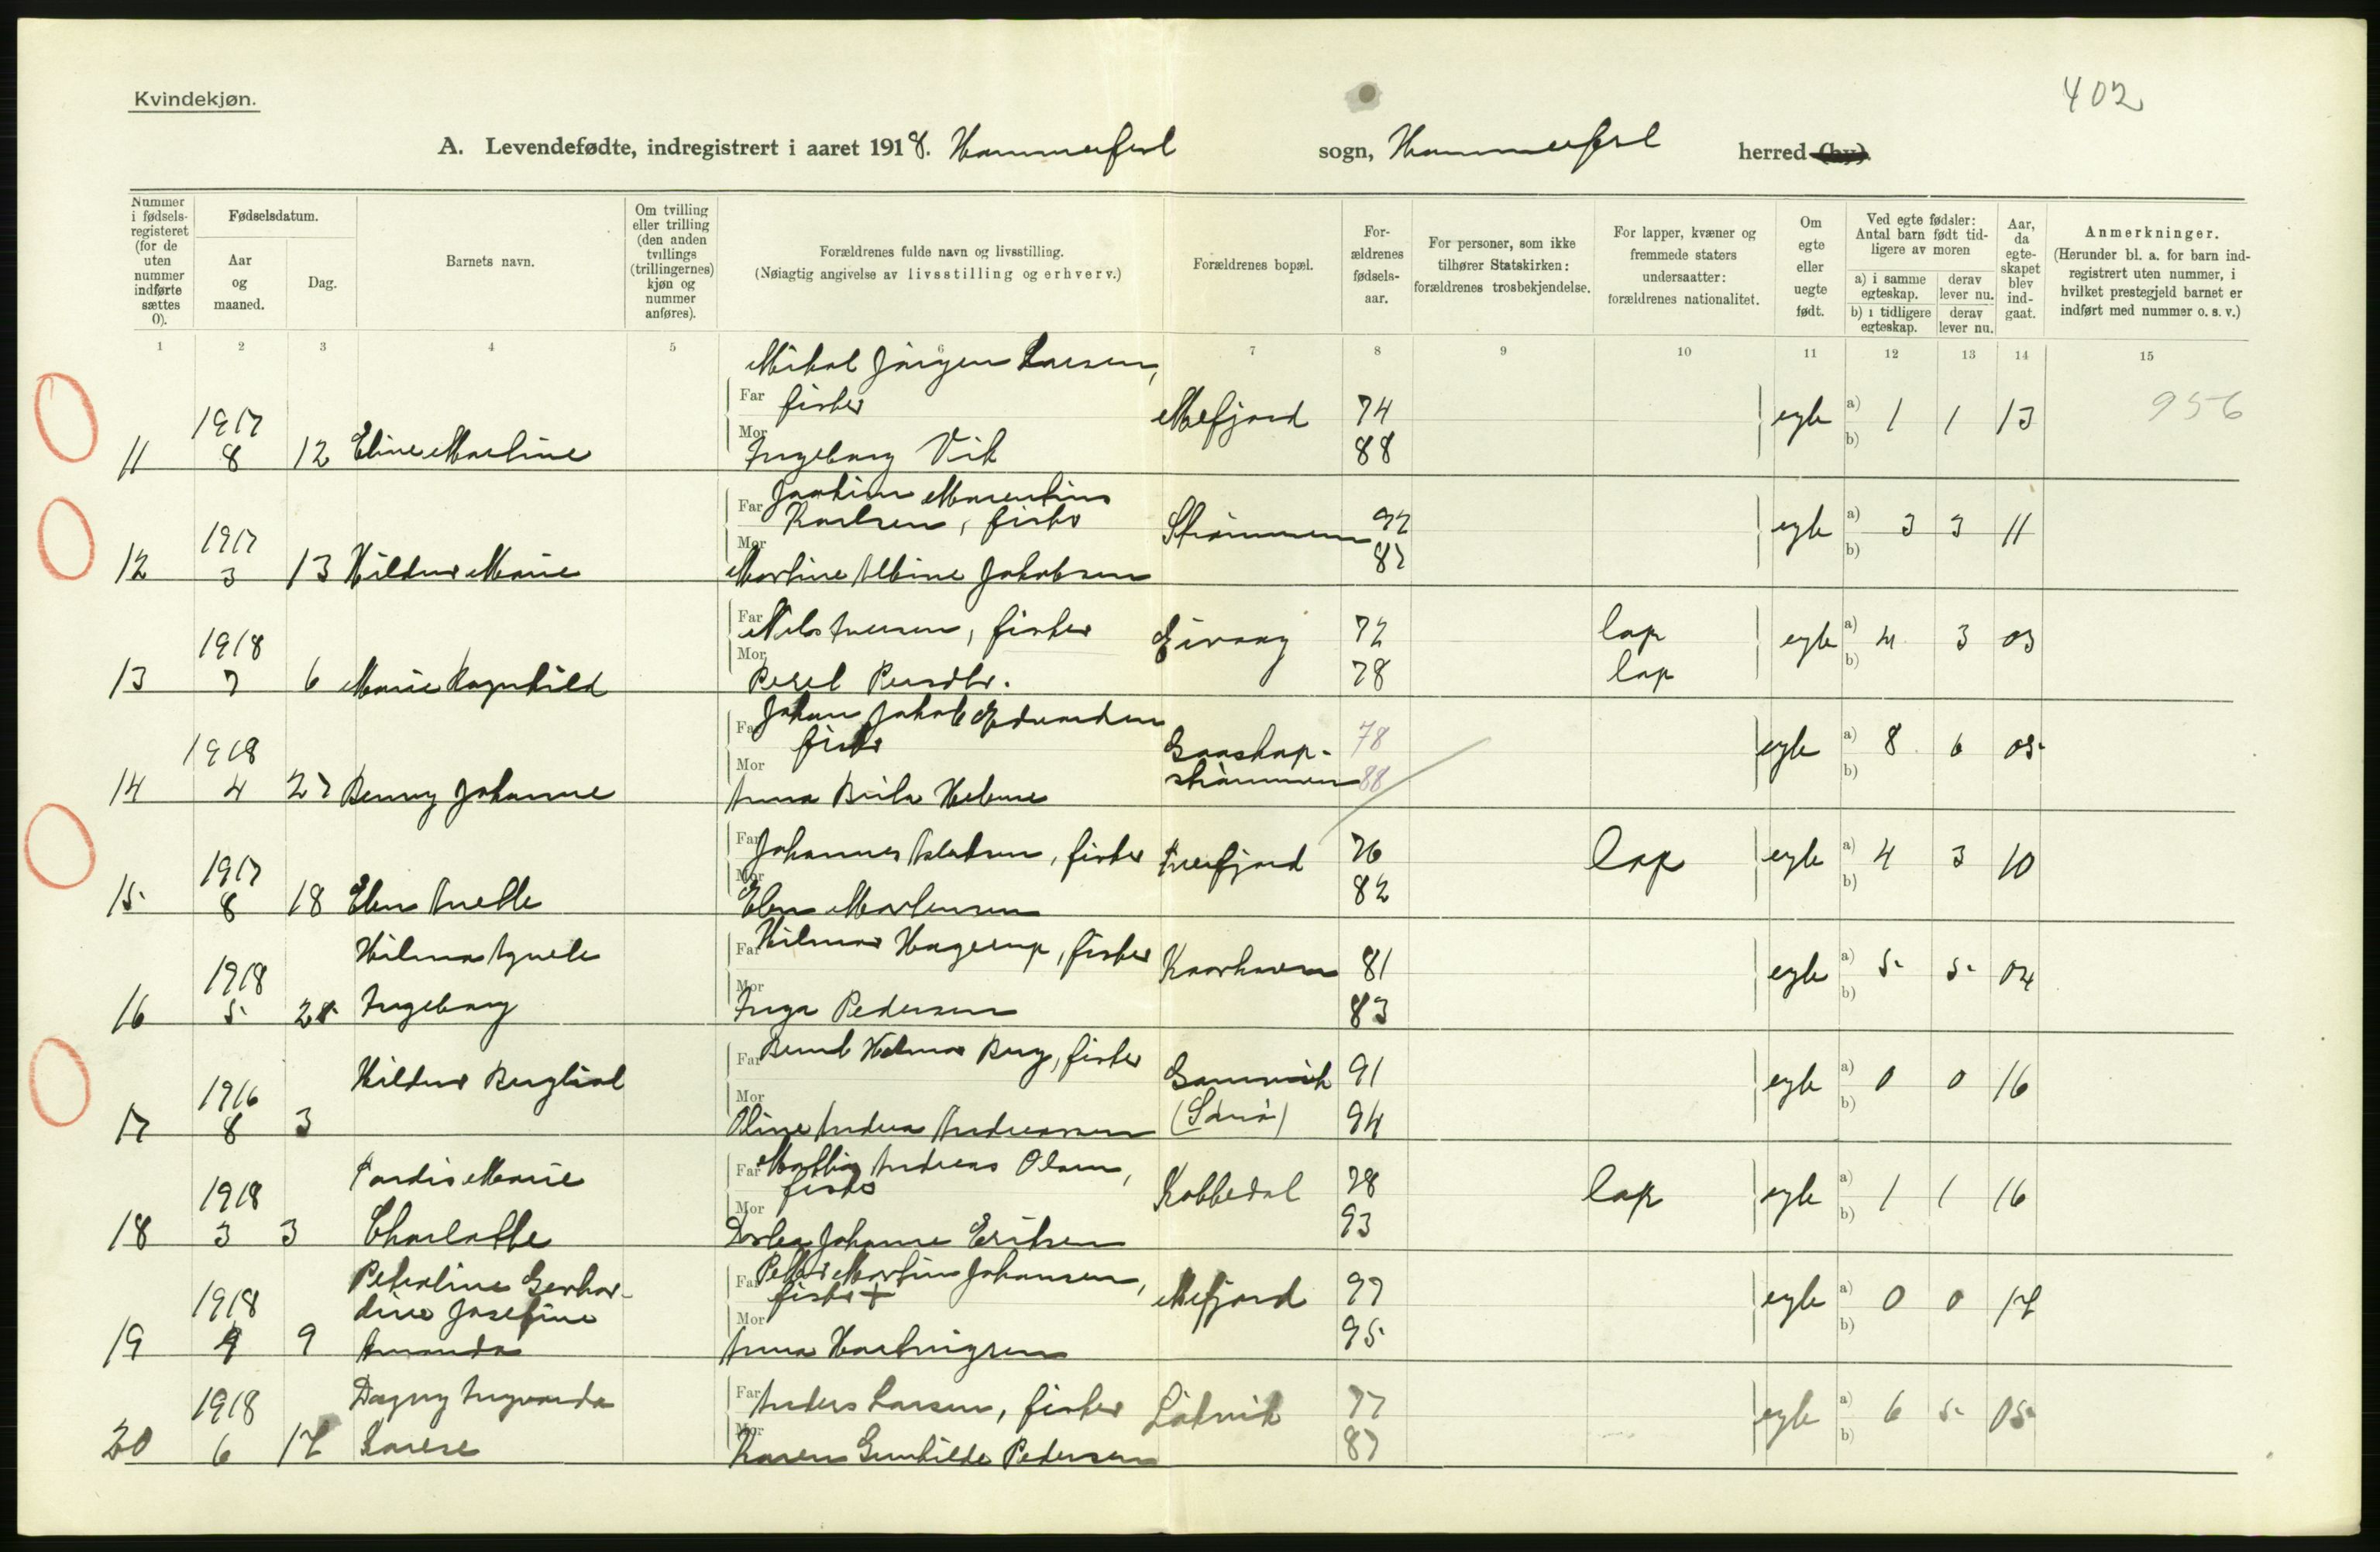 Kvindekjøn.
402
A. Levendefødte, indregistrert i aaret 1918. Hammerfest sogn, Hammerfest herred (by).
Nummer i fødsels-registeret (for de uten nummer indførte sættes 0).
Fødselsdatum.
Aar og maaned.
Dag.
Barnets navn.
Om tvilling eller trilling (den anden tvillings (trillingernes) kjøn og nummer anføres).
Forældrenes fulde navn og livsstilling.
(Nøiagtig angivelse av livsstilling og erhverv.)
Forældrenes bopæl.
For-ældrenes fødsels-aar.
For personer, som ikke tilhører Statskirken: forældrenes trosbekjendelse.
For lapper, kvæner og fremmede staters undersaatter: forældrenes nationalitet.
Om egte eller uegte født.
Ved egte fødsler: Antal barn født tid-ligere av moren
a) i samme egteskap.
derav lever nu.
b) i tidligere egteskap.
derav lever nu.
Aar, da egte-skapet blev ind-gaat.
Anmerkninger.
(Herunder bl. a. for barn ind-registrert uten nummer, i hvilket prestegjeld barnet er indført med nummer o. s. v.)
1 2 3 4 5 6 7 8 9 10 11 12 13 14 15
Mikal Jörgen Larsen,
Far fisker Mefjord 74 egte a) 1 1 13 956
1917 Mor b)
11 8 12 Eline Martine Ingeborg Vik 88
Joakim Marentius
Far Karlsen, fisker Strömmen 92 egte a) 3 3 11
1917 Mor b)
12 3 13 Hildur Marie Martine Albine Jakobsen 87
Far Nils Iversen, fisker Eivaag 72 lap egte a) 4 3 03
1918 Mor b)
13 7 6 Marie Ragnhild Persdtr. 78 lap
Johan Jakob Edvardsen
Far fisker Gaaskop- 78 egte a) 8 6 05
1918 Mor strömmen 88 b)
14 4 27 Benny Johanne Anna Brita Helene
Far Johannes Aslaksen, fisker Revsfjord 76 lap egte a) 4 3 10
1917 Mor b)
15 8 18 Elen Anette Elen Mortensen 82
Hilma Agnete Far Hilmar Hagerup, fisker Kaarhavn 81 egte a) 5 5 04
1918 Mor b)
16 5 25 Ingeborg Inga Pedersen 83
Hildur Bergliot Far Bernt Helmar Berg, fisker Gammvik 91 egte a) 0 0 16
1916 Mor (Sörö) b)
17 8 3 Oline Andrea Andreassen 94
Tordis Marie Far Mathis Andreas Olsen,
1918 fisker Kobbedal 78 lap egte a) 1 1 16
Mor b)
18 3 3 Charlotte Dortea Johanne Eriksen 93
Petroline Gerhar- Far Peder Martin Johansen,
1918 dine Josefine fisker + Mefjord 97 egte a) 0 0 17
Mor b)
19 4 9 Amanda Anna Hartvigsen 95
Dagny Ingvarda Far Anders Larsen, fisker Lökvik 77 egte a) 6 5 05
1918 Mor b)
20 6 17 Lovise Karen Gunhilde Pedersen 87